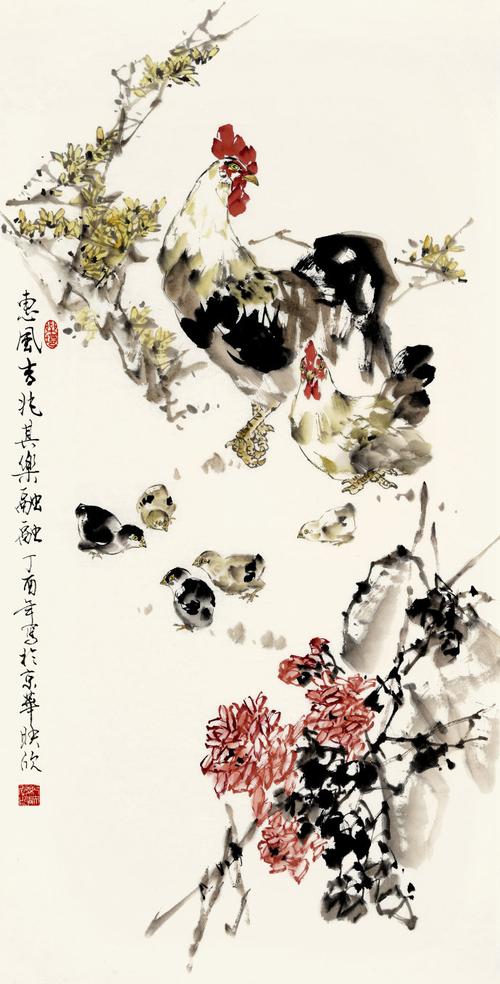 惠風吉兆其樂融融丁酉年寫於京華映欣